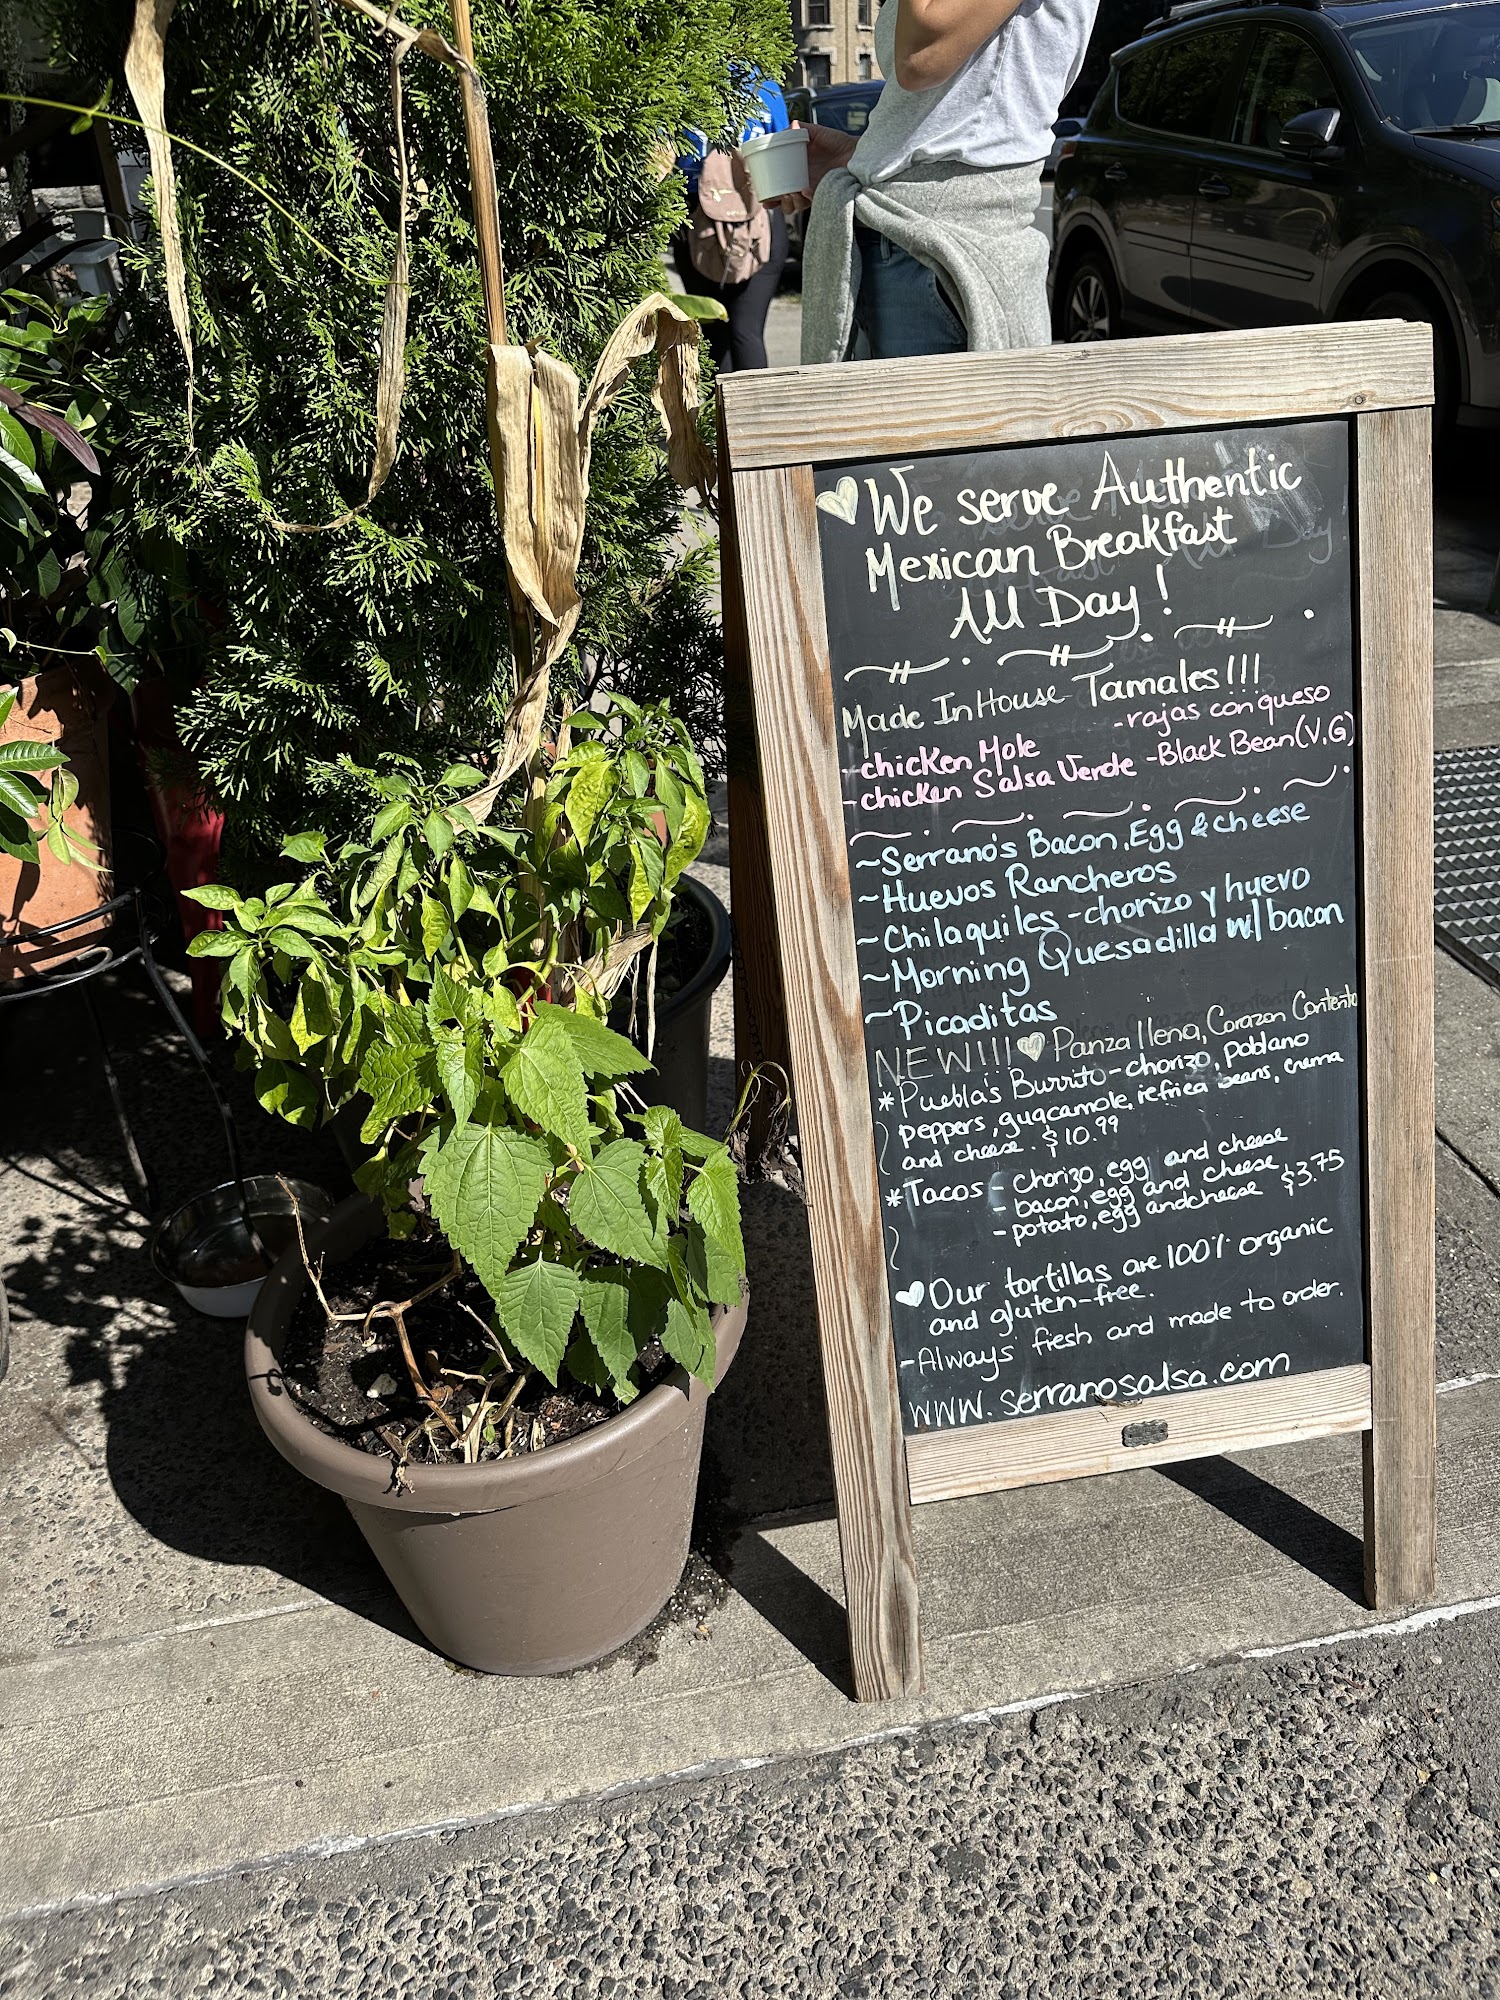 We serve Authentic
Mexican Breakfast
All Day!
Made In House Tamales!!!
-chicken Mole -rajas con queso
-chicken Salsa Verde -Black Bean(V,G)
~Serrano's Bacon, Egg & cheese
~Huevos Rancheros
~Chilaquiles -chorizo y huevo
~Morning Quesadilla w/ bacon
~Picaditas
NEW!!! Panza llena, Corazon Contento
*Puebla's Burrito-chorizo, poblano
peppers, guacamole, refried beans, crema
and cheese. $10.99
*Tacos - Chorizo, egg and cheese
- bacon, egg and cheese $3.75
- potato, egg and cheese
Our tortillas are 100% organic
and gluten-free.
-Always fresh and made to order.
www.serranosalsa.com